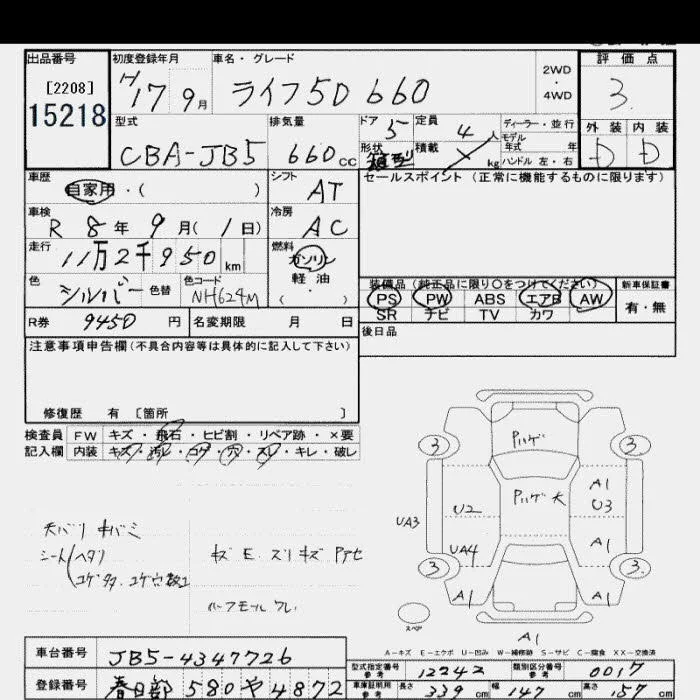 出品番号
[2208]
15218
初度登録年月
H17 9月
車名・グレード
ライフ5D 660
2WD
・
4WD
評価点
3
型式
CBA-JB5
排気量
660cc
ドア
5
形状
箱型
定員
4人
積載
kg
ディーラー・並行
モデル年式 年
ハンドル 左・右
外装 内装
D D
車歴
自家用・( )
シフト
AT
セールスポイント(正常に機能するものに限ります)
車検
R 8年 9月( 1日)
冷房
AC
走行
11万2千950km
燃料
ガソリン
軽油
・( )
色
シルバー
色替
色コード
NH624M
装備品(純正品に限り○をつけてください)
PS PW ABS エアB AW
SR ナビ TV カワ
新車保証書
有・無
R券 9450円
名変期限 月 日
後日品
注意事項申告欄(不具合内容等は具体的に記入して下さい)
修復歴 有 [箇所 ]
検査員 FW キズ・飛石・ヒビ割・リペア跡・×要
記入欄 内装 キズ・汚レ・コゲ・穴・スレ・キレ・破レ
天バリ キバミ
シート ヘタリ
コゲ多、コゲ穴数コ
キズ E. スリキズ
ハーフモール ワレ
Pハゲ
3 3
Pハゲ 大
A1
U3
U2
UA3
UA4
A1
3 3
A1 A1
スペア
A1
A-キズ E-エクボ U-凹み W-補修跡 S-サビ C-腐食 XX-交換済
車台番号 JB5-4347726
型式指定番号 参考 12242 類別区分番号 参考 0017
登録番号 春日部 580 や 4872
車庫証明用 参考 長さ 339cm 幅 147cm 高さ 157cm